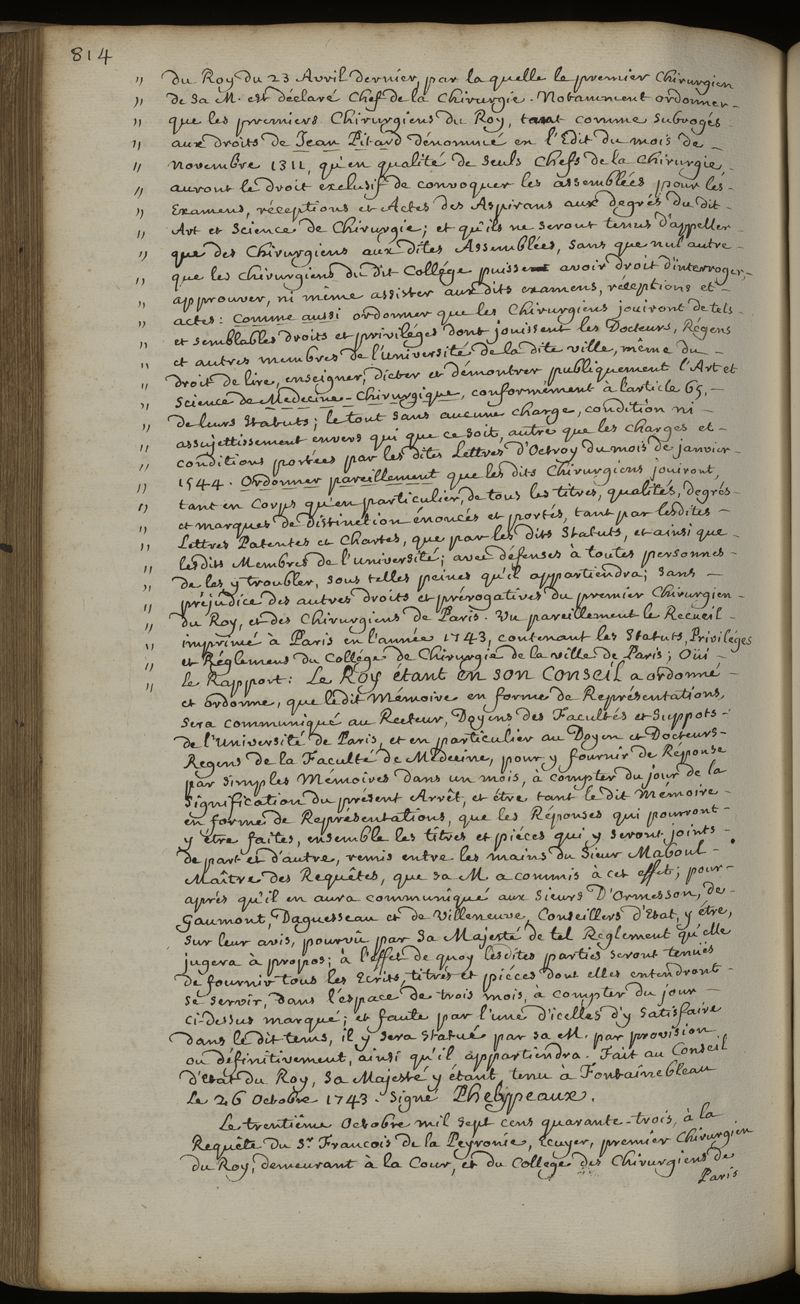 814
" du Roy du 23 Avril dernier, par la quelle le premier Chirurgien
" de Sa M. est déclaré Chef de la Chirurgie. Notamment ordonner-
" que les premiers Chirurgiens du Roy, tant comme subrogés
" aux droits de Jean Pitard dénommé en l'Edit du mois de -
" Novembre 1311, qu'en qualité de seuls Chefs de la Chirurgie, -
" auront le droit exclusif de convoquer les assemblées pour les -
" Examens, réceptions et Actes des Aspirans aux degrés du dit -
" Art et Science de Chirurgie; et qu'ils ne seront tenus d'appeller -
" que des Chirurgiens aux dites Assemblées, sans que nul autre -
" que les chirurgiens du dit Collége puissent avoir droit d'interroger, -
" approuver, ni même assister aux dits examens, réceptions et -
" actes: Comme aussi ordonner que les Chirurgiens jouiront de tels -
" et semblables droits et priviléges dont jouissent les Docteurs, Régens
" et autres membres de l'université de la dite ville, même du -
" droit de lire, enseigner, dicter et démontrer publiquement l'Art et
" Science de Medecine-Chirurgique, conformément à l'article 65, -
" de leurs Statuts; le tout sans aucune charge, condition ni -
" assujettissement envers qui que ce soit, autre que les charges et -
" conditions portées par les dites Lettres d'Octroy du mois de janvier -
" 1544. Ordonner pareillement que les dits Chirurgiens jouiront,
" tant en Corps qu'en particulier, de tous les titres, qualités, degrés -
" et marques de distinction énoncés et portés, tant par lesdites -
" Lettres Patentes et Chartes, que par les dits Statuts, et ainsi que -
" lesdits Membres de l'université; avec défenses à toutes personnes -
" de les y troubler, sous telles peines qu'il appartiendra; sans -
" préjudice des autres droits et prérogatives du premier Chirurgien -
" du Roy, et des Chirurgiens de Paris. Vu pareillement le Recueil -
" imprimé à Paris en l'année 1743, contenant les Statuts, Priviléges
" et Réglemens du Collége de Chirurgie de la ville de Paris; Oüi -
" le Rapport: Le Roy étant en son Conseil a ordonné -
et ordonne, que ledit Mémoire en forme de Représentations,
sera communiqué au Recteur, Doyens des Facultés et Suppots -
de l'Université de Paris, et en particulier au Doyen et Docteurs -
Regens de la Faculté de Médecine, pour y fournir de Réponse
par simples Mémoires dans un mois, à compter du jour de la
signification du présent Arrêt, et être tant le dit Mémoire -
en forme de Représentations, que les Réponses qui pourront -
y être faites, ensemble les titres et piéces qui y seront joints -
de part et d'autre, remis entre les mains du Sieur Maboul -
Maître des Requêtes, que sa M. a commis à cet effet; pour -
après qu'il en aura communiqué aux Sieurs D'Ormesson, de -
Gaumont, Daguesseau et de Villeneuve, Conseillers d'Etat, y être,
sur leur avis, pourvû par Sa Majesté de tel Reglement qu'elle
jugera à propos; à l'effet de quoy lesdites parties seront tenues
de fournir tous les Ecrits, titres et piéces dont elles entendront -
se servir, dans l'espace de trois mois, à compter du jour -
ci-dessus marqué; et faute par l'une d'icelles d'y satisfaire
dans le dit tems, il y sera statué par sa M. par provision
ou définitivement, ainsi qu'il appartiendra. Fait au Conseil
d'Etat du Roy, Sa Majesté y étant, tenu à Fontainebleau
le 26 Octobre 1743. Signé Phelypeaux.
Le trentième Octobre mil sept cens quarante-trois, à la
Requête du Sr. Francois de la Peyronie, Ecuyer, premier Chirurgien
du Roy, demeurant à la Cour, et du College des Chirurgiens de
Paris